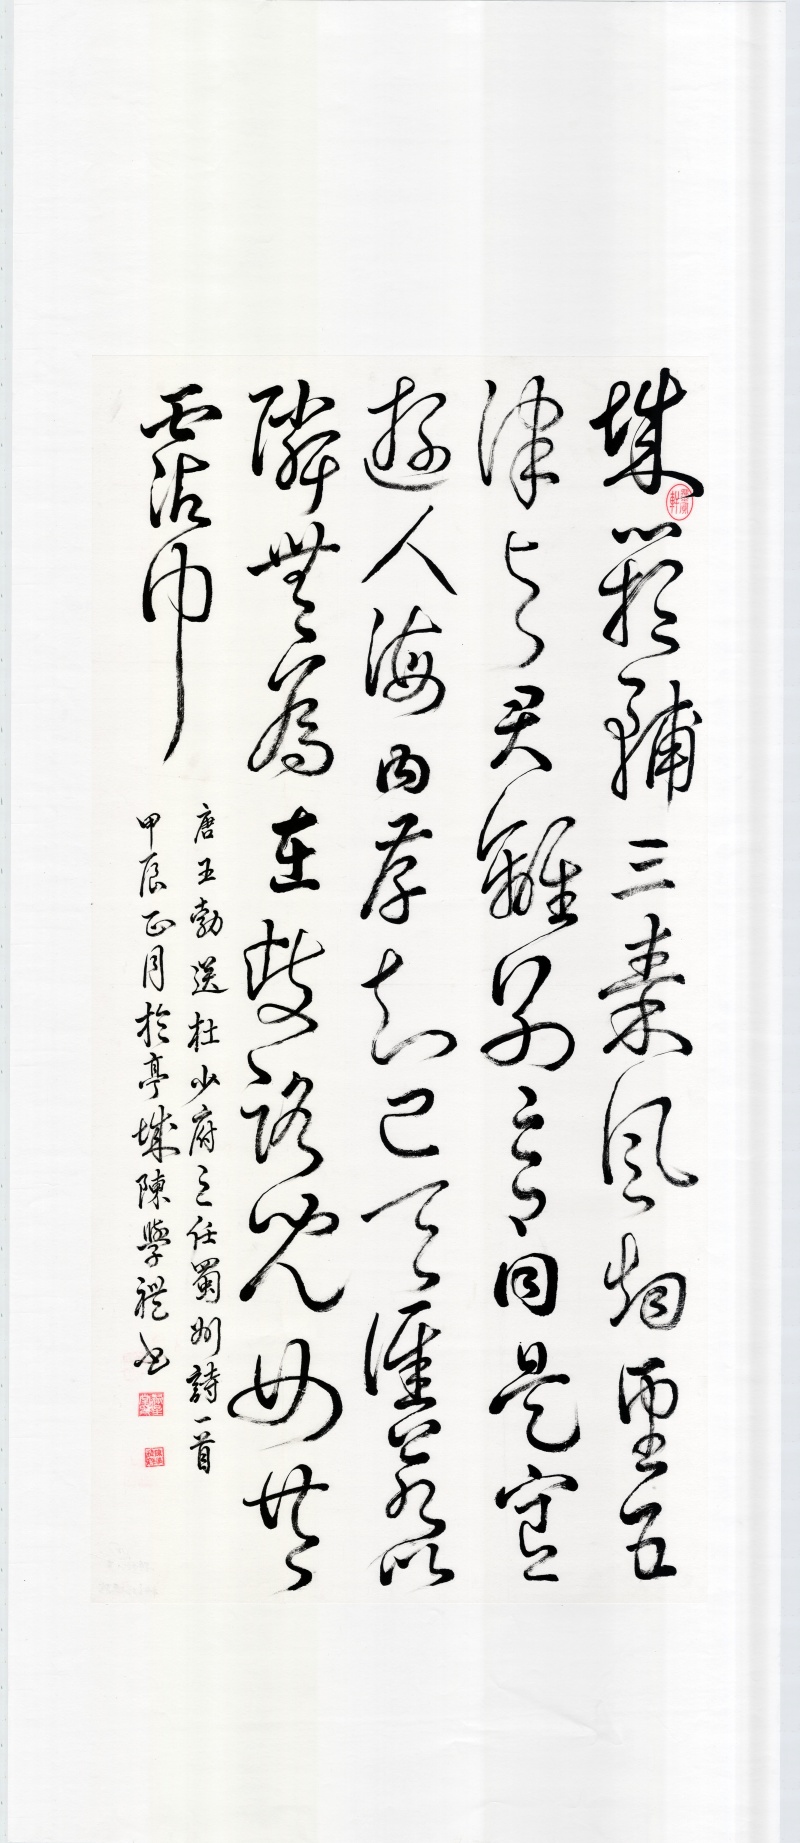 城闕輔三秦風烟望五
津與君離別意同是宦
遊人海內存知己天涯若比
隣無為在歧路兒女共
霑巾
唐王勃送杜少府之任蜀州詩一首
甲辰正月於亭城陳學禮書